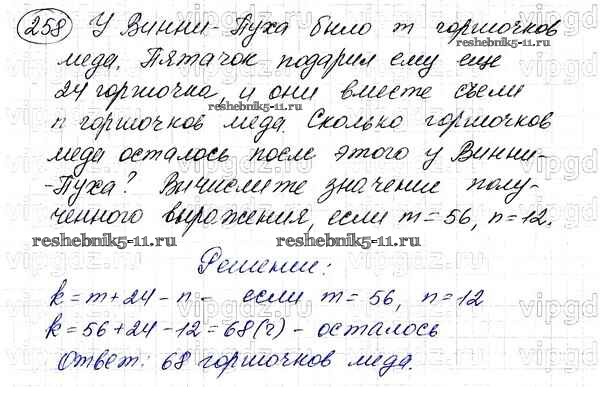 258 У Винни-Пуха было m горшочков
меда. Пятачок подарил ему еще
24 горшочка, и они вместе съели
reshebnik5-11.ru
n горшочков меда. Сколько горшочков
меда осталось после этого у Винни-
-Пуха? Вычислите значение полу-
ченного выражения, если m = 56, n = 12.
reshebnik5-11.ru reshebnik5-11.ru
Решение:
k = m + 24 - n - если m = 56, n = 12
k = 56 + 24 - 12 = 68 (г) - осталось
Ответ: 68 горшочков меда.